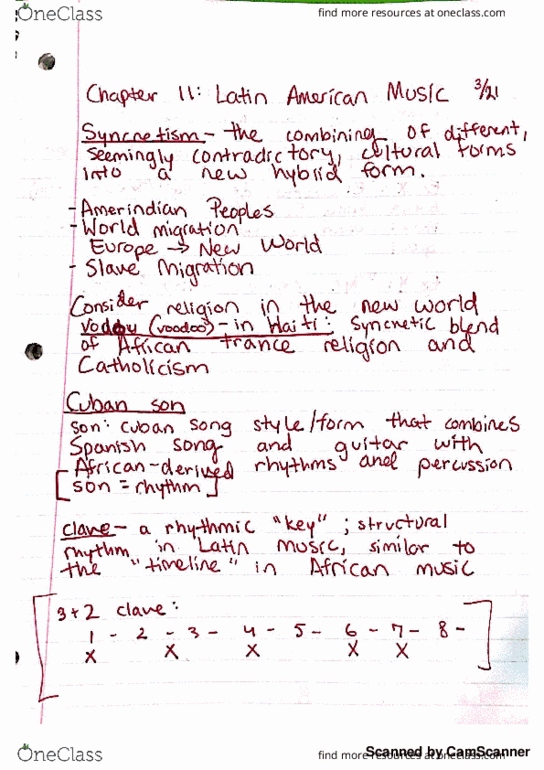 OneClass
find more resources at oneclass.com
Chapter 11: Latin American Music 3/21
Syncretism - the combining of different,
seemingly contradictory, cultural forms
into a new hybrid form.
- Amerindian Peoples
- World migration
Europe → New World
- Slave Migration
Consider religion in the new world
Vodou (voodoo) - in Haiti: Syncretic blend
of African trance religion and
Catholicism
Cuban son
son: cuban song style/form that combines
Spanish song and guitar with
African-derived rhythms and percussion
[son = rhythm]
clave - a rhythmic "key"; structural
rhythm in Latin music, similar to
the "timeline" in African music
3+2 clave:
1 - 2 - 3 - 4 - 5 - 6 - 7 - 8 -
X X X X X
OneClass
find more resources at oneclass.com
Scanned by CamScanner